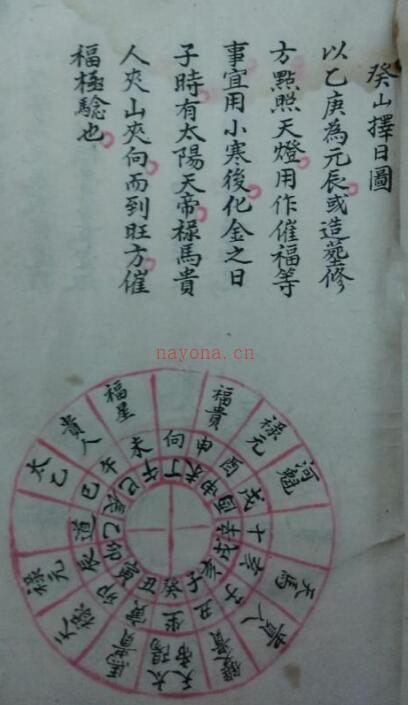 癸山擇日圖
以乙庚為元辰或造塟修
方點照天燈用作催福等
事宜用小寒後化金之日
子時有太陽天帝祿馬貴
人夾山夾向而到旺方催
福極騐也
nayona.cn
福貴
祿元
河魁
天馬
貴人
太陽
天帝
祿元
太乙
貴人
福星
向
申
酉
戌
十
亥
子
丑
坐
寅
卯
辰
道
巳
午
未
丁
癸
丑
子
亥